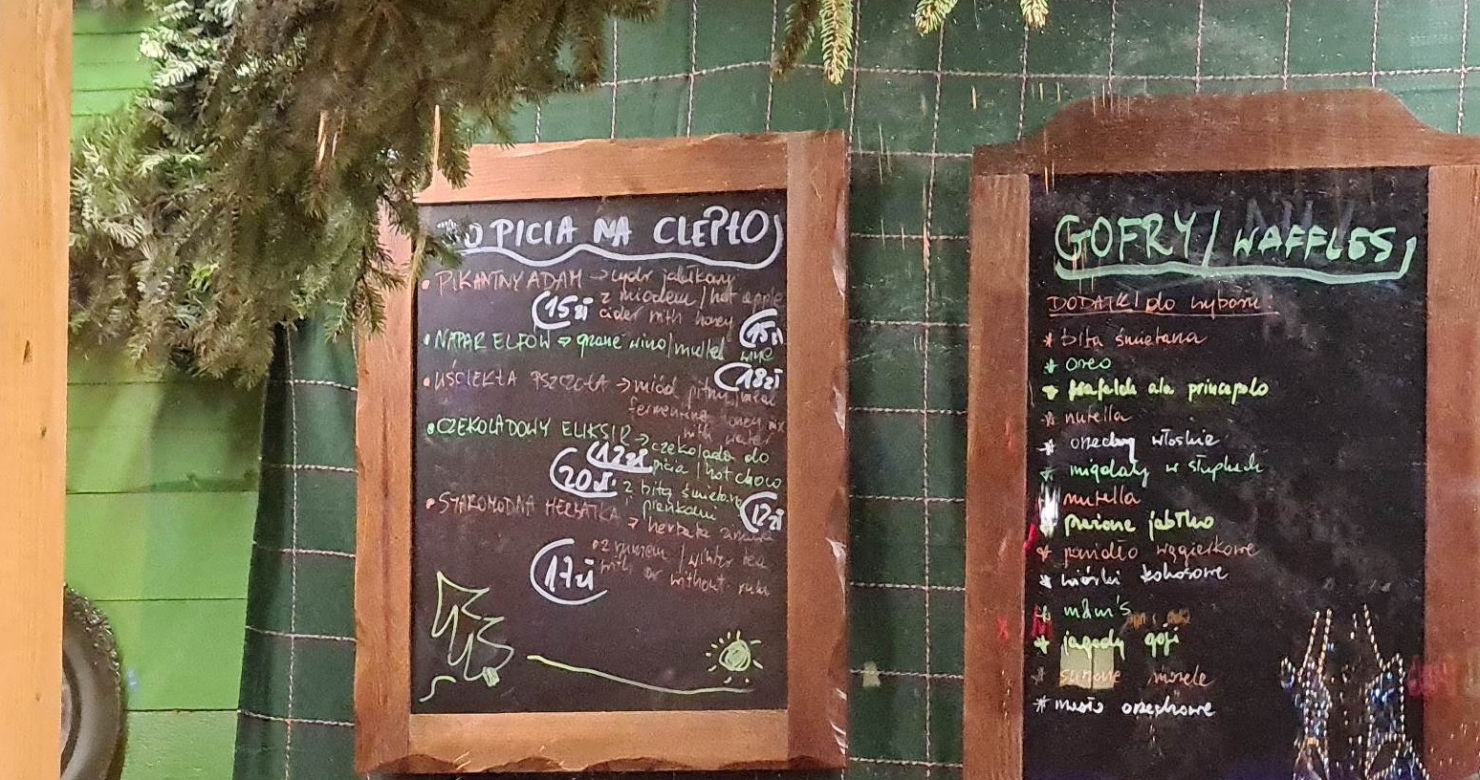 DO PICIA NA CIEPŁO
• PIKANTNY ADAM → cydr jabłkowy
15zł z miodem / hot apple
cider with honey 15zł
• NAPAR ELFÓW → grzane wino/mulled wine
18zł
• WŚCIEKŁA PSZCZOŁA → miód pitny/mead
fermenting honey mix
with water
• CZEKOLADOWY ELIKSIR → czekolada do
12zł picia / hot choco
20zł z bitą śmietaną
piankami 12zł
• STAROMODNA HERBATKA → herbata zimowa
• z rumem / winter tea
17zł with or without rum
GOFRY / WAFFLES
DODATKI do wyboru:
* bita śmietana
* oreo
* frafaldk ala princepolo
* nutella
* orzechy włoskie
* migdały w słupkach
* nutella
* prażone jabłko
* powidło węgierkowe
* wiórki kokosowe
* m&m's
* jagody goji
* suszone morele
* masło orzechowe